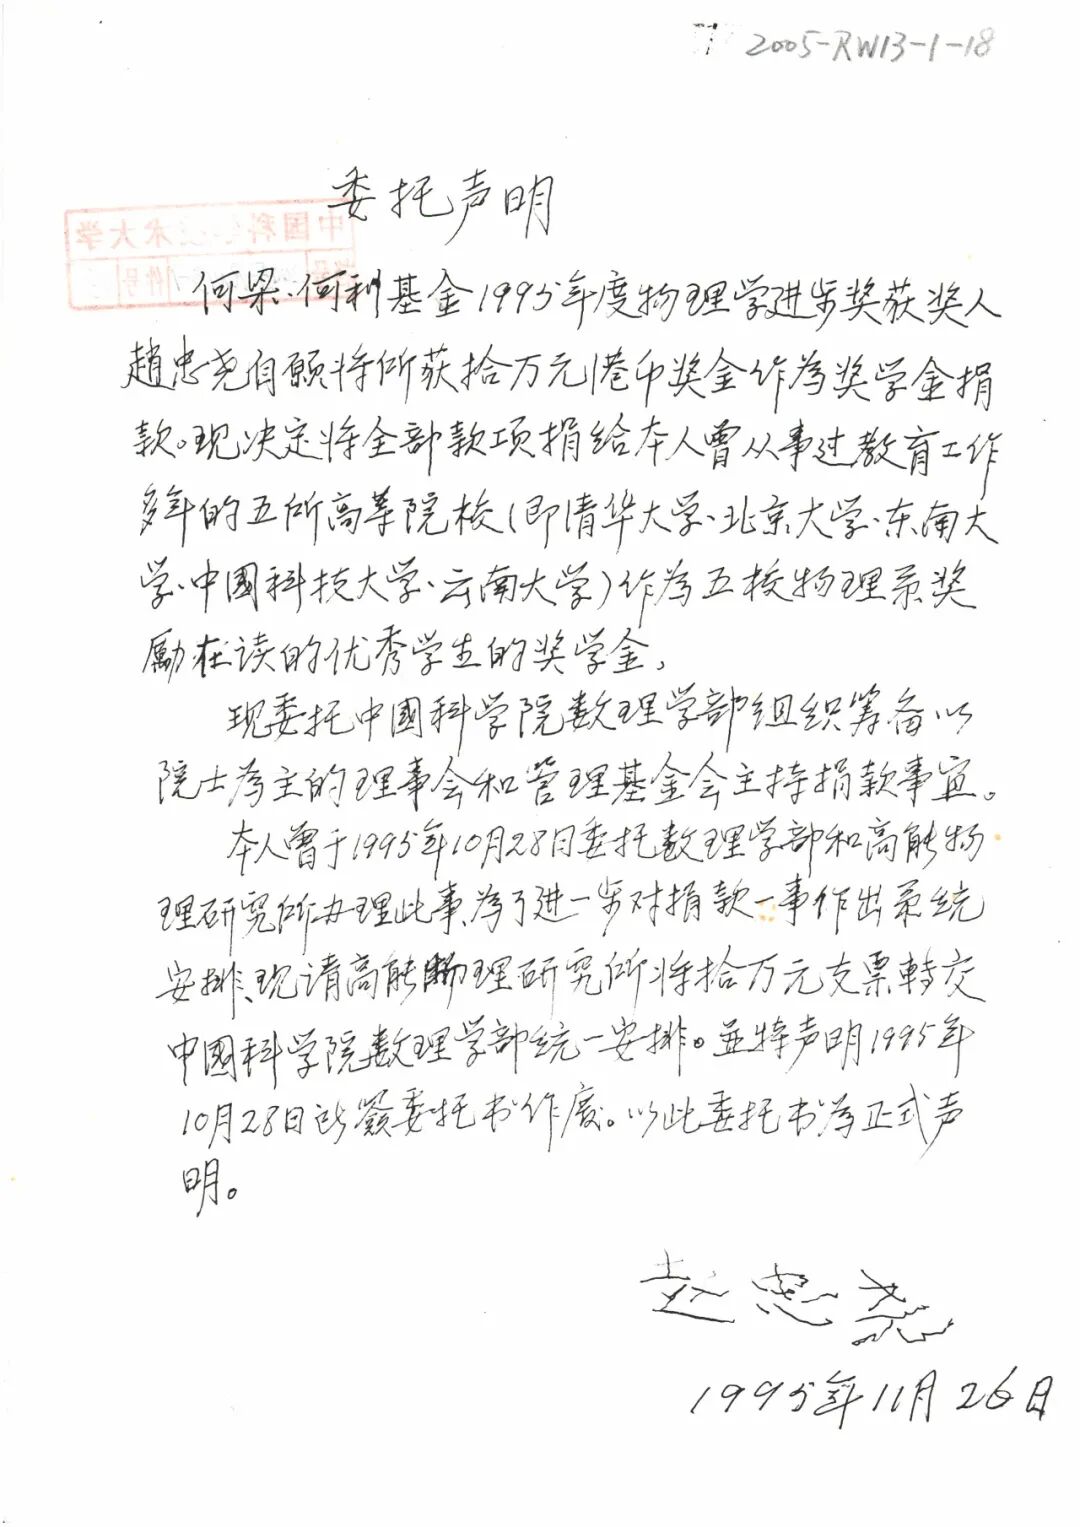 2005-RW13-1-18
委托声明
中国科学技术大学
件号
何梁·何利基金1995年度物理学进步奖获奖人
趙忠尧自願将所获拾万元港币奖金作為奖学金捐
款。现决定将全部款项捐给本人曾从事过教育工作
多年的五所高等院校(即清华大学、北京大学、东南大
学、中國科技大学、云南大学)作為五校物理系奖
励在读的优秀学生的奖学金。
现委托中國科学院数理学部组织筹备以
院士為主的理事会和管理基金会主持捐款事宜。
本人曾于1995年10月28日委托数理学部和高能物
理研究所办理此事、為了进一步对捐款一事作出系统
安排、现请高能物理研究所将拾万元支票轉交
中國科学院数理学部统一安排。並特声明1995年
10月28日所簽委托书作废。以此委托书為正式声
明。
赵忠尧
1995年11月26日